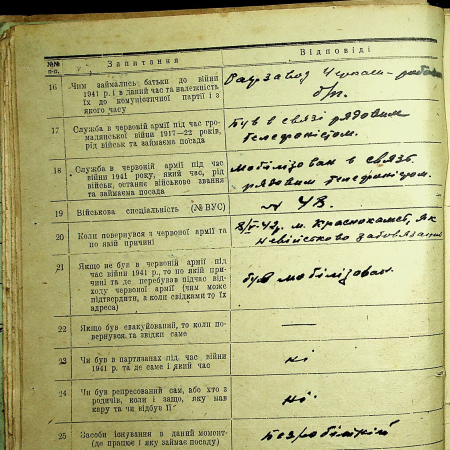 №№ п-п.
Запитання
Відповіді
16
Чим займались батьки до війни
1941 р. і в даний час та належність
їх до комуністичної партії і з
якого часу
завод Черкаси
б/п.
17
Служба в червоній армії під час гро-
мадянської війни 1917—22 років,
рід військ та займаєма посада
Був в связі рядовим
телефоністом.
18
Служба в червоній армії під час
війни 1941 року, який час, рід
військ, останнє військове звання
та займаєма посада
мобілізован в связь
рядовим телефоністом.
19
Військова спеціальність (№ ВУС)
№ 48.
20
Коли повернувся з червоної армії та
по якій причині
м. Краснокамск, як
21
Якщо не був в червоній армії під
час війни 1941 р., то по якій при-
чині та де перебував підчас від-
ходу червоної армії (чим може
підтвердити, а коли свідками то їх
адреса)
був мобілізован.
22
Якщо був евакуйований, то коли по-
вернувся та звідки саме
—
23
Чи був в партизанах під час війни
1941 р. та де саме і який час
ні
24
Чи був репресований сам, або хто з
родичів, коли і защо, яку мав
кару та чи відбув її
ні.
25
Засоби існування в даний момент
(де працює і яку займає посаду)
Безробітний